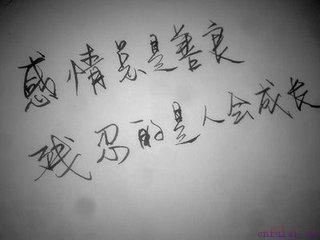 感情总是善良
残忍的是人会成长